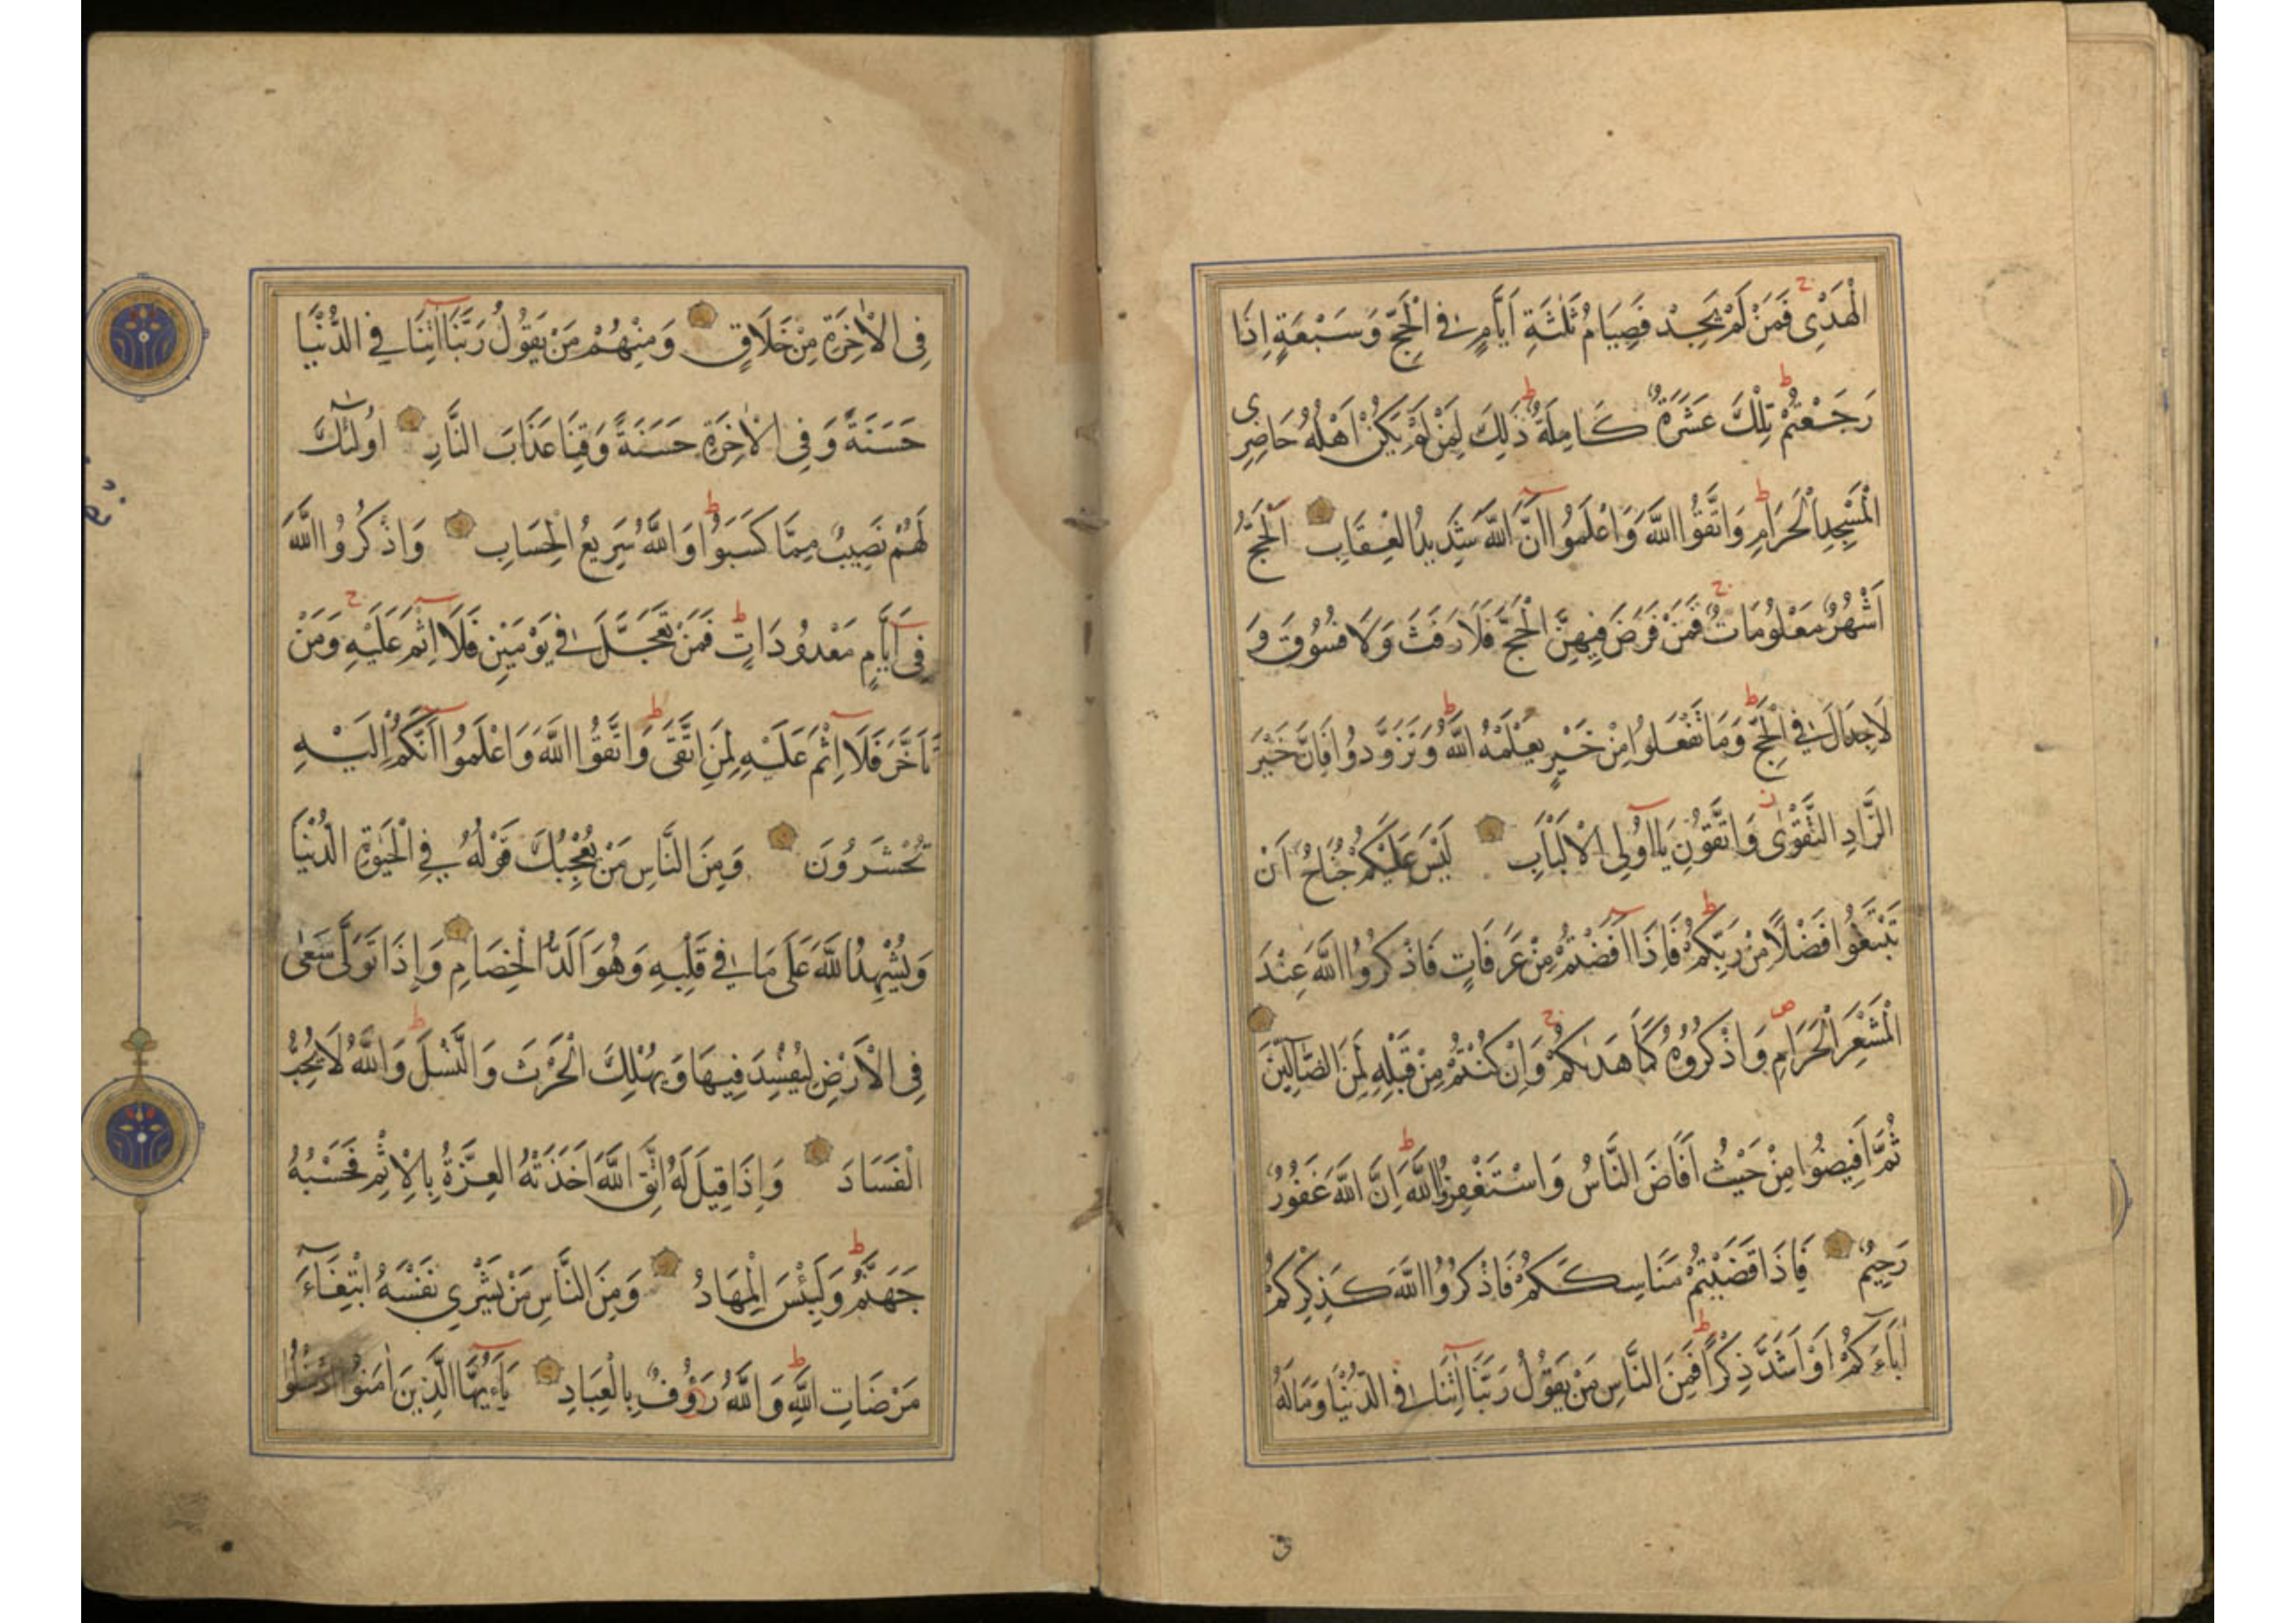 الْهَدْيِ فَمَنْ لَمْ يَجِدْ فَصِيَامُ ثَلٰثَةِ اَيَّامٍ فِي الْحَجِّ وَسَبْعَةٍ اِذَا
رَجَعْتُمْ تِلْكَ عَشَرَةٌ كَامِلَةٌ ذٰلِكَ لِمَنْ لَمْ يَكُنْ اَهْلُهُ حَاضِرِي
الْمَسْجِدِ الْحَرَامِ وَاتَّقُوا اللّٰهَ وَاعْلَمُوا اَنَّ اللّٰهَ شَدِيدُ الْعِقَابِ اَلْحَجُّ
اَشْهُرٌ مَعْلُومَاتٌ فَمَنْ فَرَضَ فِيهِنَّ الْحَجَّ فَلَا رَفَثَ وَلَا فُسُوقَ وَ
لَا جِدَالَ فِي الْحَجِّ وَمَا تَفْعَلُوا مِنْ خَيْرٍ يَعْلَمْهُ اللّٰهُ وَتَزَوَّدُوا فَاِنَّ خَيْرَ
الزَّادِ التَّقْوٰى وَاتَّقُونِ يَا اُولِي الْاَلْبَابِ لَيْسَ عَلَيْكُمْ جُنَاحٌ اَنْ
تَبْتَغُوا فَضْلًا مِنْ رَبِّكُمْ فَاِذَا اَفَضْتُمْ مِنْ عَرَفَاتٍ فَاذْكُرُوا اللّٰهَ عِنْدَ
الْمَشْعَرِ الْحَرَامِ وَاذْكُرُوهُ كَمَا هَدٰىكُمْ وَاِنْ كُنْتُمْ مِنْ قَبْلِهِ لَمِنَ الضَّآلِّينَ
ثُمَّ اَفِيضُوا مِنْ حَيْثُ اَفَاضَ النَّاسُ وَاسْتَغْفِرُوا اللّٰهَ اِنَّ اللّٰهَ غَفُورٌ
رَحِيمٌ فَاِذَا قَضَيْتُمْ مَنَاسِكَكُمْ فَاذْكُرُوا اللّٰهَ كَذِكْرِكُمْ
اٰبَاءَكُمْ اَوْ اَشَدَّ ذِكْرًا فَمِنَ النَّاسِ مَنْ يَقُولُ رَبَّنَا اٰتِنَا فِي الدُّنْيَا وَمَا لَهُ
فِي الْاٰخِرَةِ مِنْ خَلَاقٍ وَمِنْهُمْ مَنْ يَقُولُ رَبَّنَا اٰتِنَا فِي الدُّنْيَا
حَسَنَةً وَفِي الْاٰخِرَةِ حَسَنَةً وَقِنَا عَذَابَ النَّارِ اُولٰٓئِكَ
لَهُمْ نَصِيبٌ مِمَّا كَسَبُوا وَاللّٰهُ سَرِيعُ الْحِسَابِ وَاذْكُرُوا اللّٰهَ
فِي اَيَّامٍ مَعْدُودَاتٍ فَمَنْ تَعَجَّلَ فِي يَوْمَيْنِ فَلَا اِثْمَ عَلَيْهِ وَمَنْ
تَاَخَّرَ فَلَا اِثْمَ عَلَيْهِ لِمَنِ اتَّقٰى وَاتَّقُوا اللّٰهَ وَاعْلَمُوا اَنَّكُمْ اِلَيْهِ
تُحْشَرُونَ وَمِنَ النَّاسِ مَنْ يُعْجِبُكَ قَوْلُهُ فِي الْحَيٰوةِ الدُّنْيَا
وَيُشْهِدُ اللّٰهَ عَلٰى مَا فِي قَلْبِهِ وَهُوَ اَلَدُّ الْخِصَامِ وَاِذَا تَوَلّٰى سَعٰى
فِي الْاَرْضِ لِيُفْسِدَ فِيهَا وَيُهْلِكَ الْحَرْثَ وَالنَّسْلَ وَاللّٰهُ لَا يُحِبُّ
الْفَسَادَ وَاِذَا قِيلَ لَهُ اتَّقِ اللّٰهَ اَخَذَتْهُ الْعِزَّةُ بِالْاِثْمِ فَحَسْبُهُ
جَهَنَّمُ وَلَبِئْسَ الْمِهَادُ وَمِنَ النَّاسِ مَنْ يَشْرِي نَفْسَهُ ابْتِغَآءَ
مَرْضَاتِ اللّٰهِ وَاللّٰهُ رَؤُفٌ بِالْعِبَادِ يَآءَيُّهَا الَّذِينَ اٰمَنُوا ادْخُلُوا